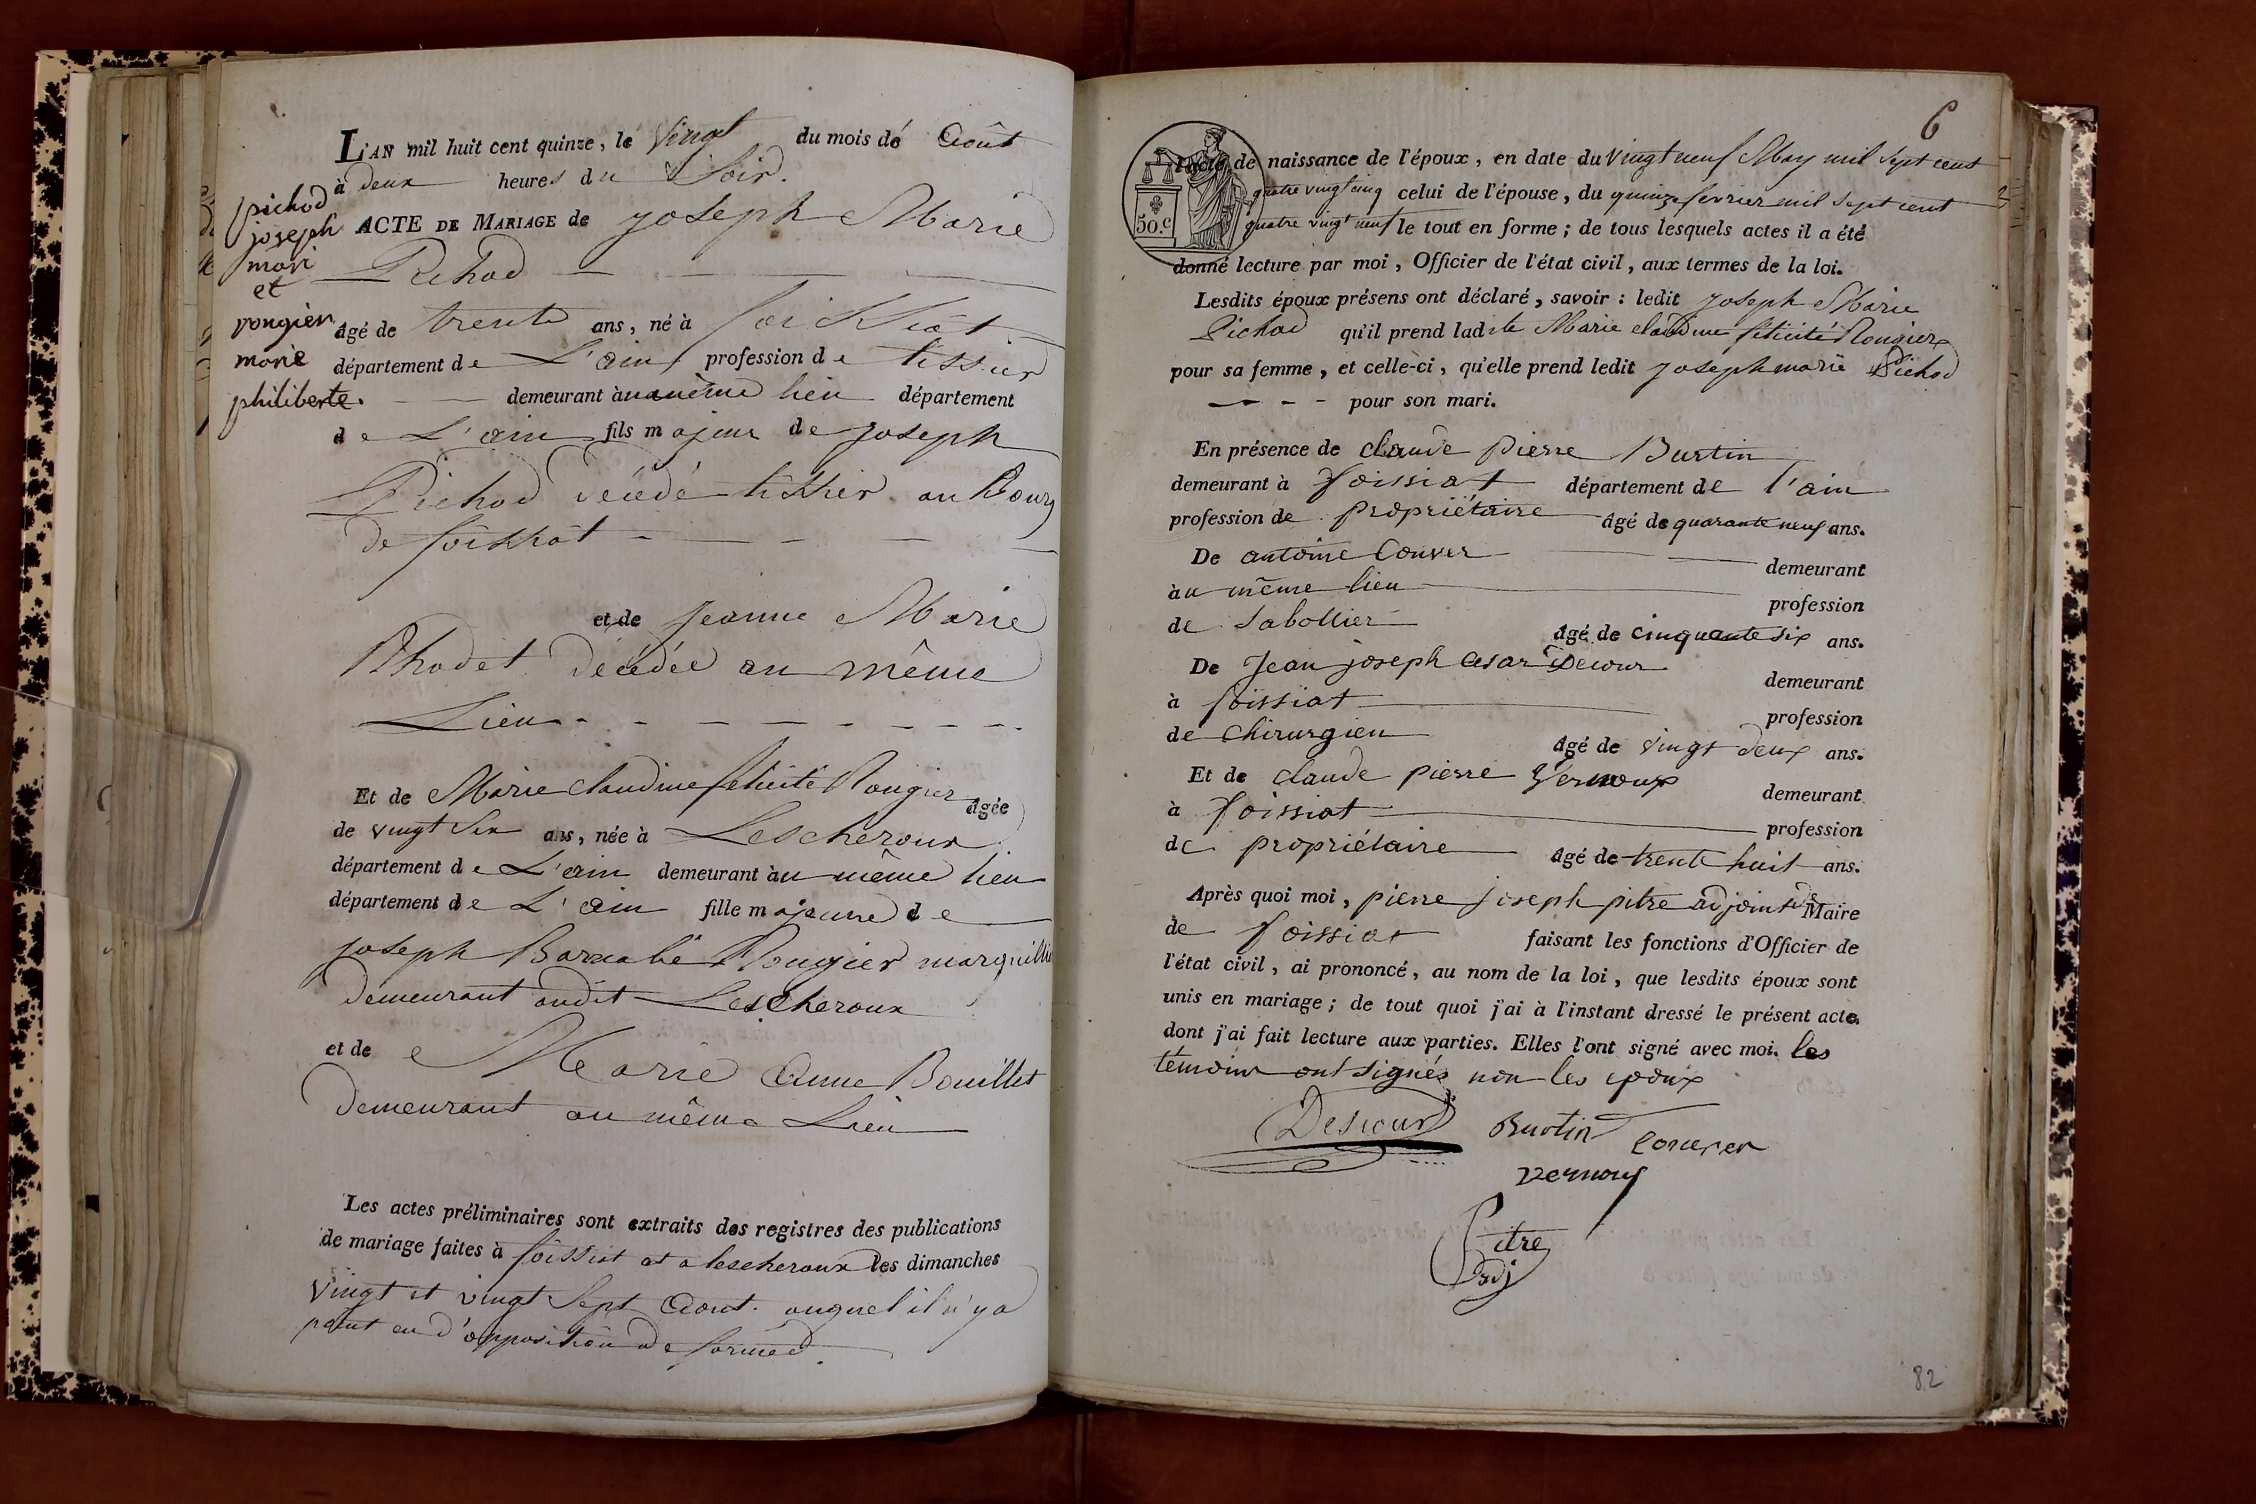 L'AN mil huit cent quinze, le vingt du mois de Août
à deux heures du Soir.
pichod
joseph
mari
et
rougier
marie
philiberte.
ACTE DE MARIAGE de joseph Marie
Pichod
âgé de trente ans, né à foissiat
département de L'ain profession de tissier
demeurant au même lieu département
de L'ain fils majeur de joseph
Pichod décédé tissier au Bourg
de foissiat
et de jeanne Marie
Rhodet décédée au même
Lieu
Et de Marie claudine felicité Rougier âgée
de vingt six ans, née à Lescheroux
département de L'ain demeurant au même lieu
département de L'ain fille majeure de
joseph Barnabé Rougier marguillier
demeurant audit Lescheroux
et de Marie Anne Bouillet
demeurant au même Lieu
Les actes préliminaires sont extraits des registres des publications
de mariage faites à foissiat et a lescheroux les dimanches
vingt et vingt sept Aout. auquel il n'y a
point eu d'opposition de formée.
6
50.c
l'acte de naissance de l'époux, en date du vingt neuf May mil sept cent
quatre vingt cinq celui de l'épouse, du quinze fevrier mil sept cent
quatre vingt neuf le tout en forme; de tous lesquels actes il a été
donné lecture par moi, Officier de l'état civil, aux termes de la loi.
Lesdits époux présens ont déclaré, savoir: ledit joseph Marie
Pichod qu'il prend ladite Marie claudine felicité Rougier
pour sa femme, et celle-ci, qu'elle prend ledit joseph marie Pichod
pour son mari.
En présence de claude pierre Burtin
demeurant à foissiat département de l'ain
profession de propriétaire âgé de quarante neuf ans.
De antoine Couver demeurant
au même lieu profession
de Sabottier âgé de cinquante six ans.
De Jean joseph Cesar Decour demeurant
à foissiat profession
de Chirurgien âgé de vingt deux ans.
Et de claude pierre Vernoux demeurant
à foissiat profession
de propriétaire âgé de trente huit ans.
Après quoi moi, pierre joseph pitre adjoint de Maire
de foissiat faisant les fonctions d'Officier de
l'état civil, ai prononcé, au nom de la loi, que lesdits époux sont
unis en mariage; de tout quoi j'ai à l'instant dressé le présent acte,
dont j'ai fait lecture aux parties. Elles l'ont signé avec moi. les
témoins ont signés non les epoux
Descour Burtin Couver
vernoux
Pitre
adj
82